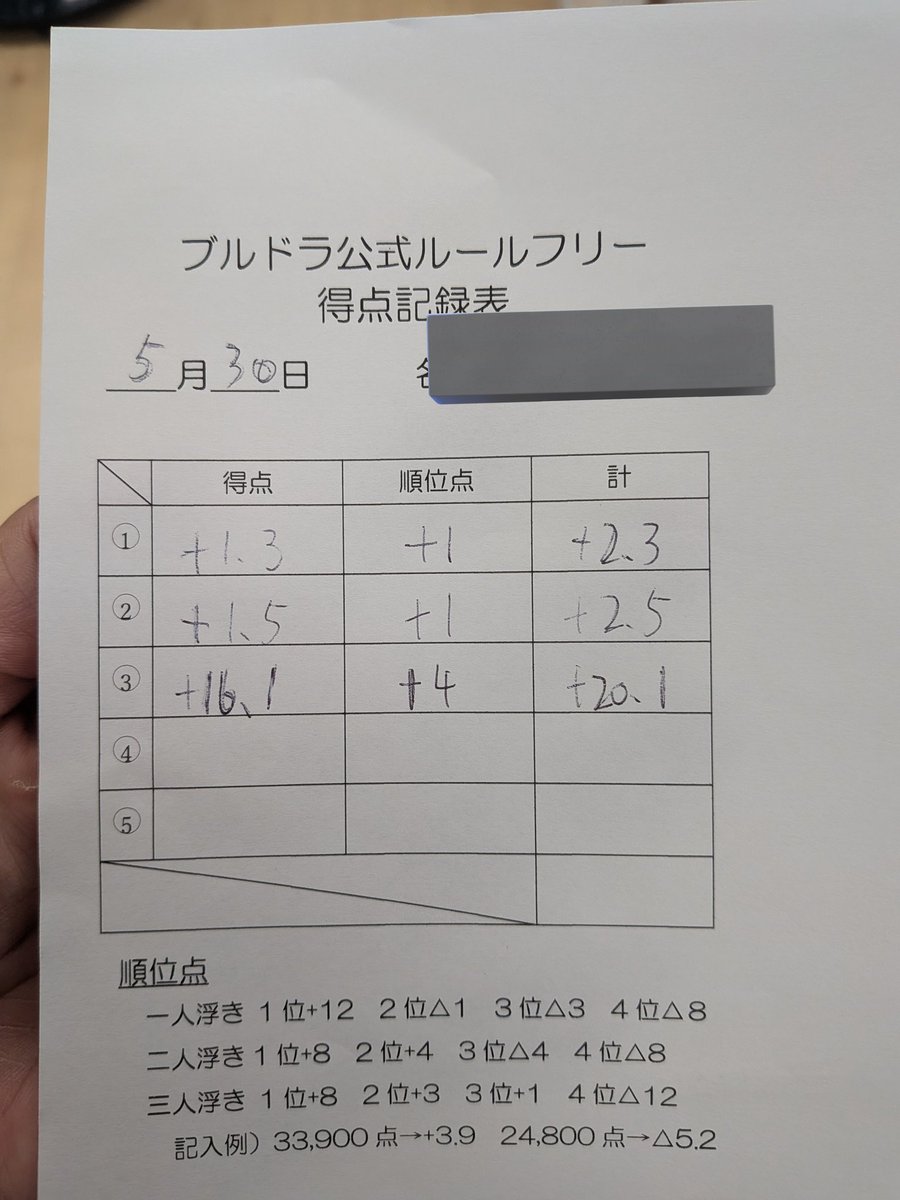 ブルドラ公式ルールフリー
得点記録表
5月30日
得点 順位点 計
① +1.3 +1 +2.3
② +1.5 +1 +2.5
③ +16.1 +4 +20.1
④
⑤
順位点
一人浮き 1位+12 2位△1 3位△3 4位△8
二人浮き 1位+8 2位+4 3位△4 4位△8
三人浮き 1位+8 2位+3 3位+1 4位△12
記入例）33,900点→+3.9 24,800点→△5.2